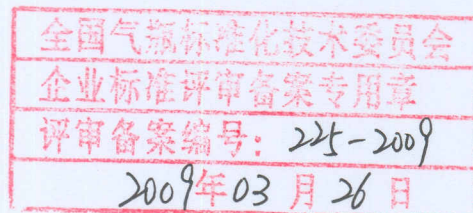 全国气瓶标准化技术委员会
企业标准评审备案专用章
评审备案编号：225-2009
2009年03月26日